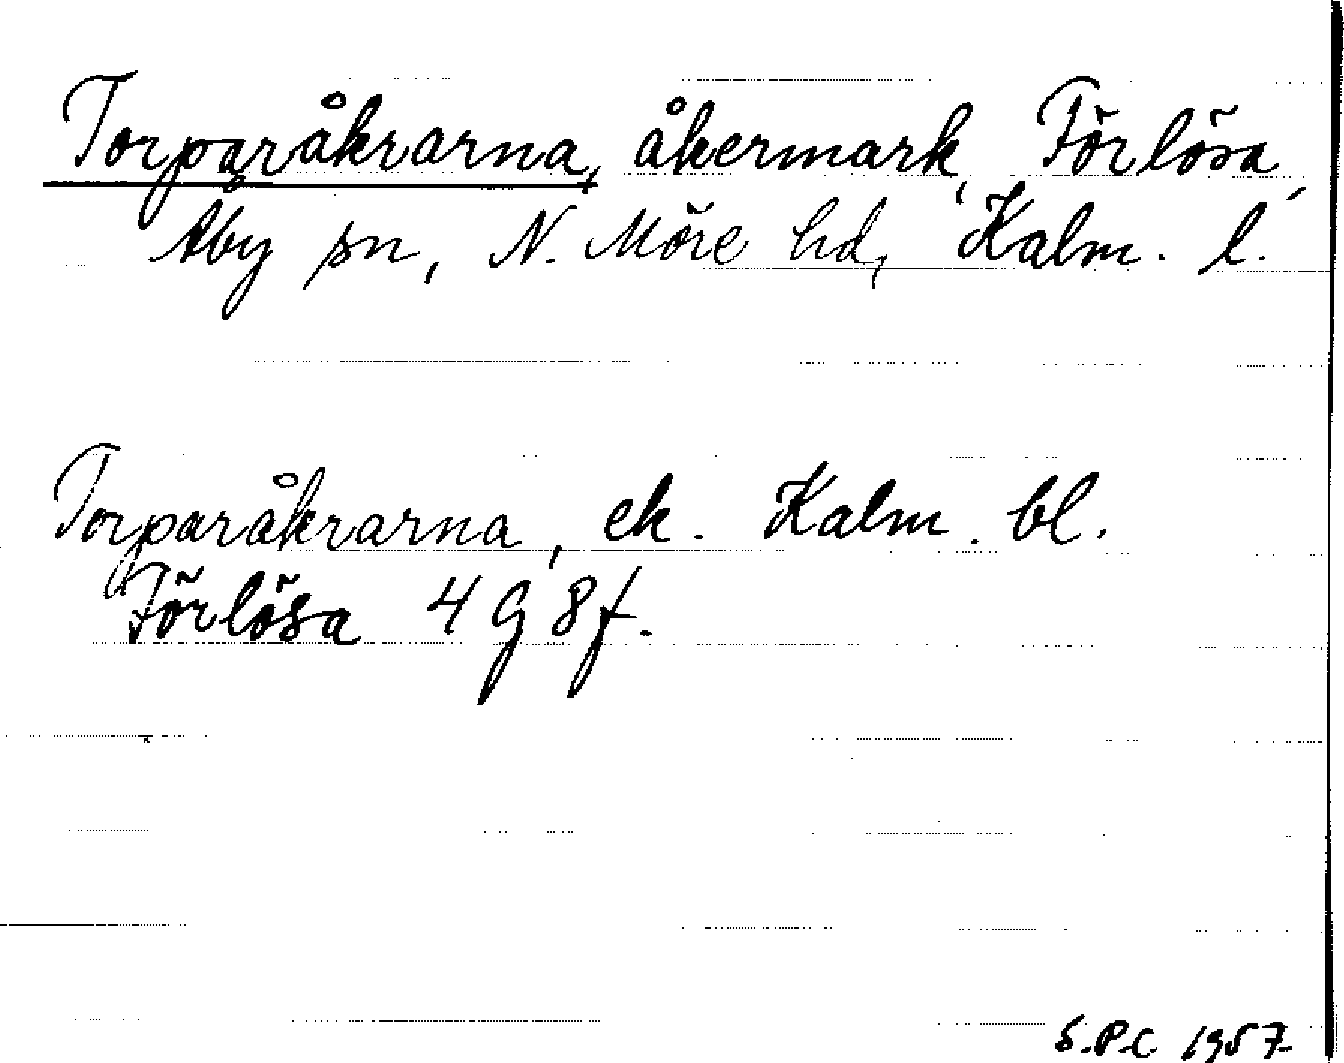 Torparåkrarna, åkermark, Förlösa,
Åby sn, N. Möre hd, Kalm. l.
Torparåkrarna, ek. Kalm. bl.
Förlösa 4 G 8 f.
S.P.C. 1957